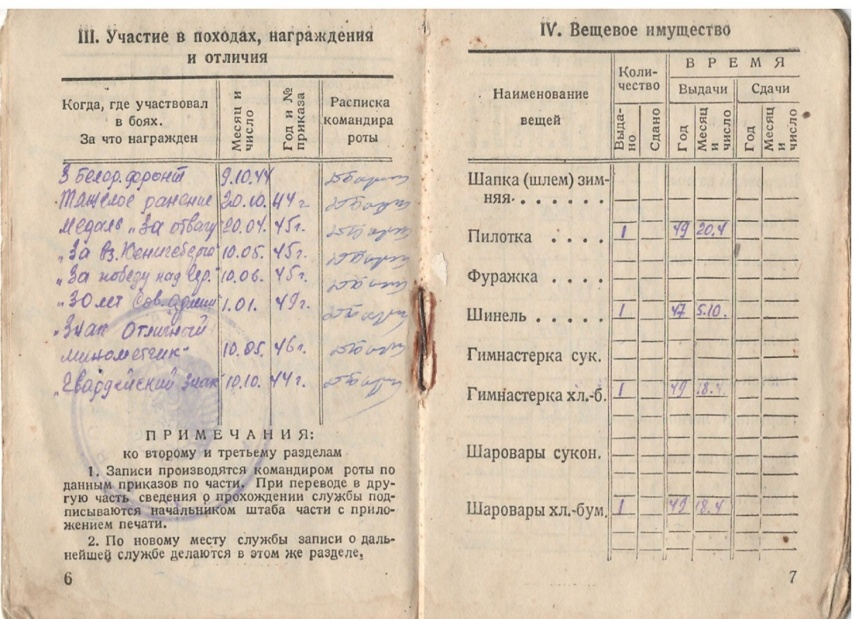 III. Участие в походах, награждения
и отличия
Когда, где участвовал
в боях.
За что награжден
Месяц и
число
Год и №
приказа
Расписка
командира
роты
3 белор. фронт 9.10.44
Тяжелое ранение 20.10. 44 г.
Медаль „За отвагу" 20.04. 45 г.
„За вз. Кенигсберга" 10.05. 45 г.
„За победу над Гер." 10.06. 45 г.
„30 лет Сов. армии" 1.01. 49 г.
„Знак Отличный
минометчик" 10.05. 46 г.
„Гвардейский знак" 10.10. 44 г.
ПРИМЕЧАНИЯ:
ко второму и третьему разделам
1. Записи производятся командиром роты по
данным приказов по части. При переводе в дру-
гую часть сведения о прохождении службы под-
писываются начальником штаба части с прило-
жением печати.
2. По новому месту службы записи о даль-
нейшей службе делаются в этом же разделе.
6
IV. Вещевое имущество
Наименование
вещей
Коли-
чество
ВРЕМЯ
Выдачи
Сдачи
Выда-
но
Сдано
Год
Месяц
и
число
Год
Месяц
и
число
Шапка (шлем) зим-
няя . . . . . .
Пилотка . . . . 1 49 20.4
Фуражка . . . .
Шинель . . . . . 1 47 5.10.
Гимнастерка сук.
Гимнастерка хл.-б. 1 49 18.4
Шаровары сукон.
Шаровары хл.-бум. 1 49 18.4
7